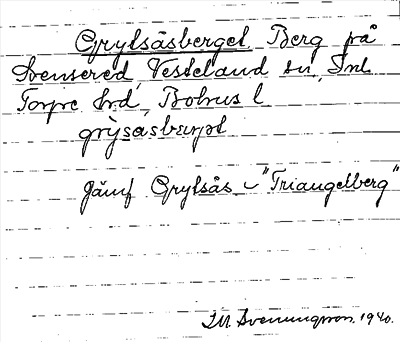 Grytsåsberget Berg på
Svensered, Västerland sn, Inl.
Torpe hrd, Bohus l
grýsåsbärjət
Jämf Grytsås – "Triangelberg"
I.M. Svenungsson. 1940.